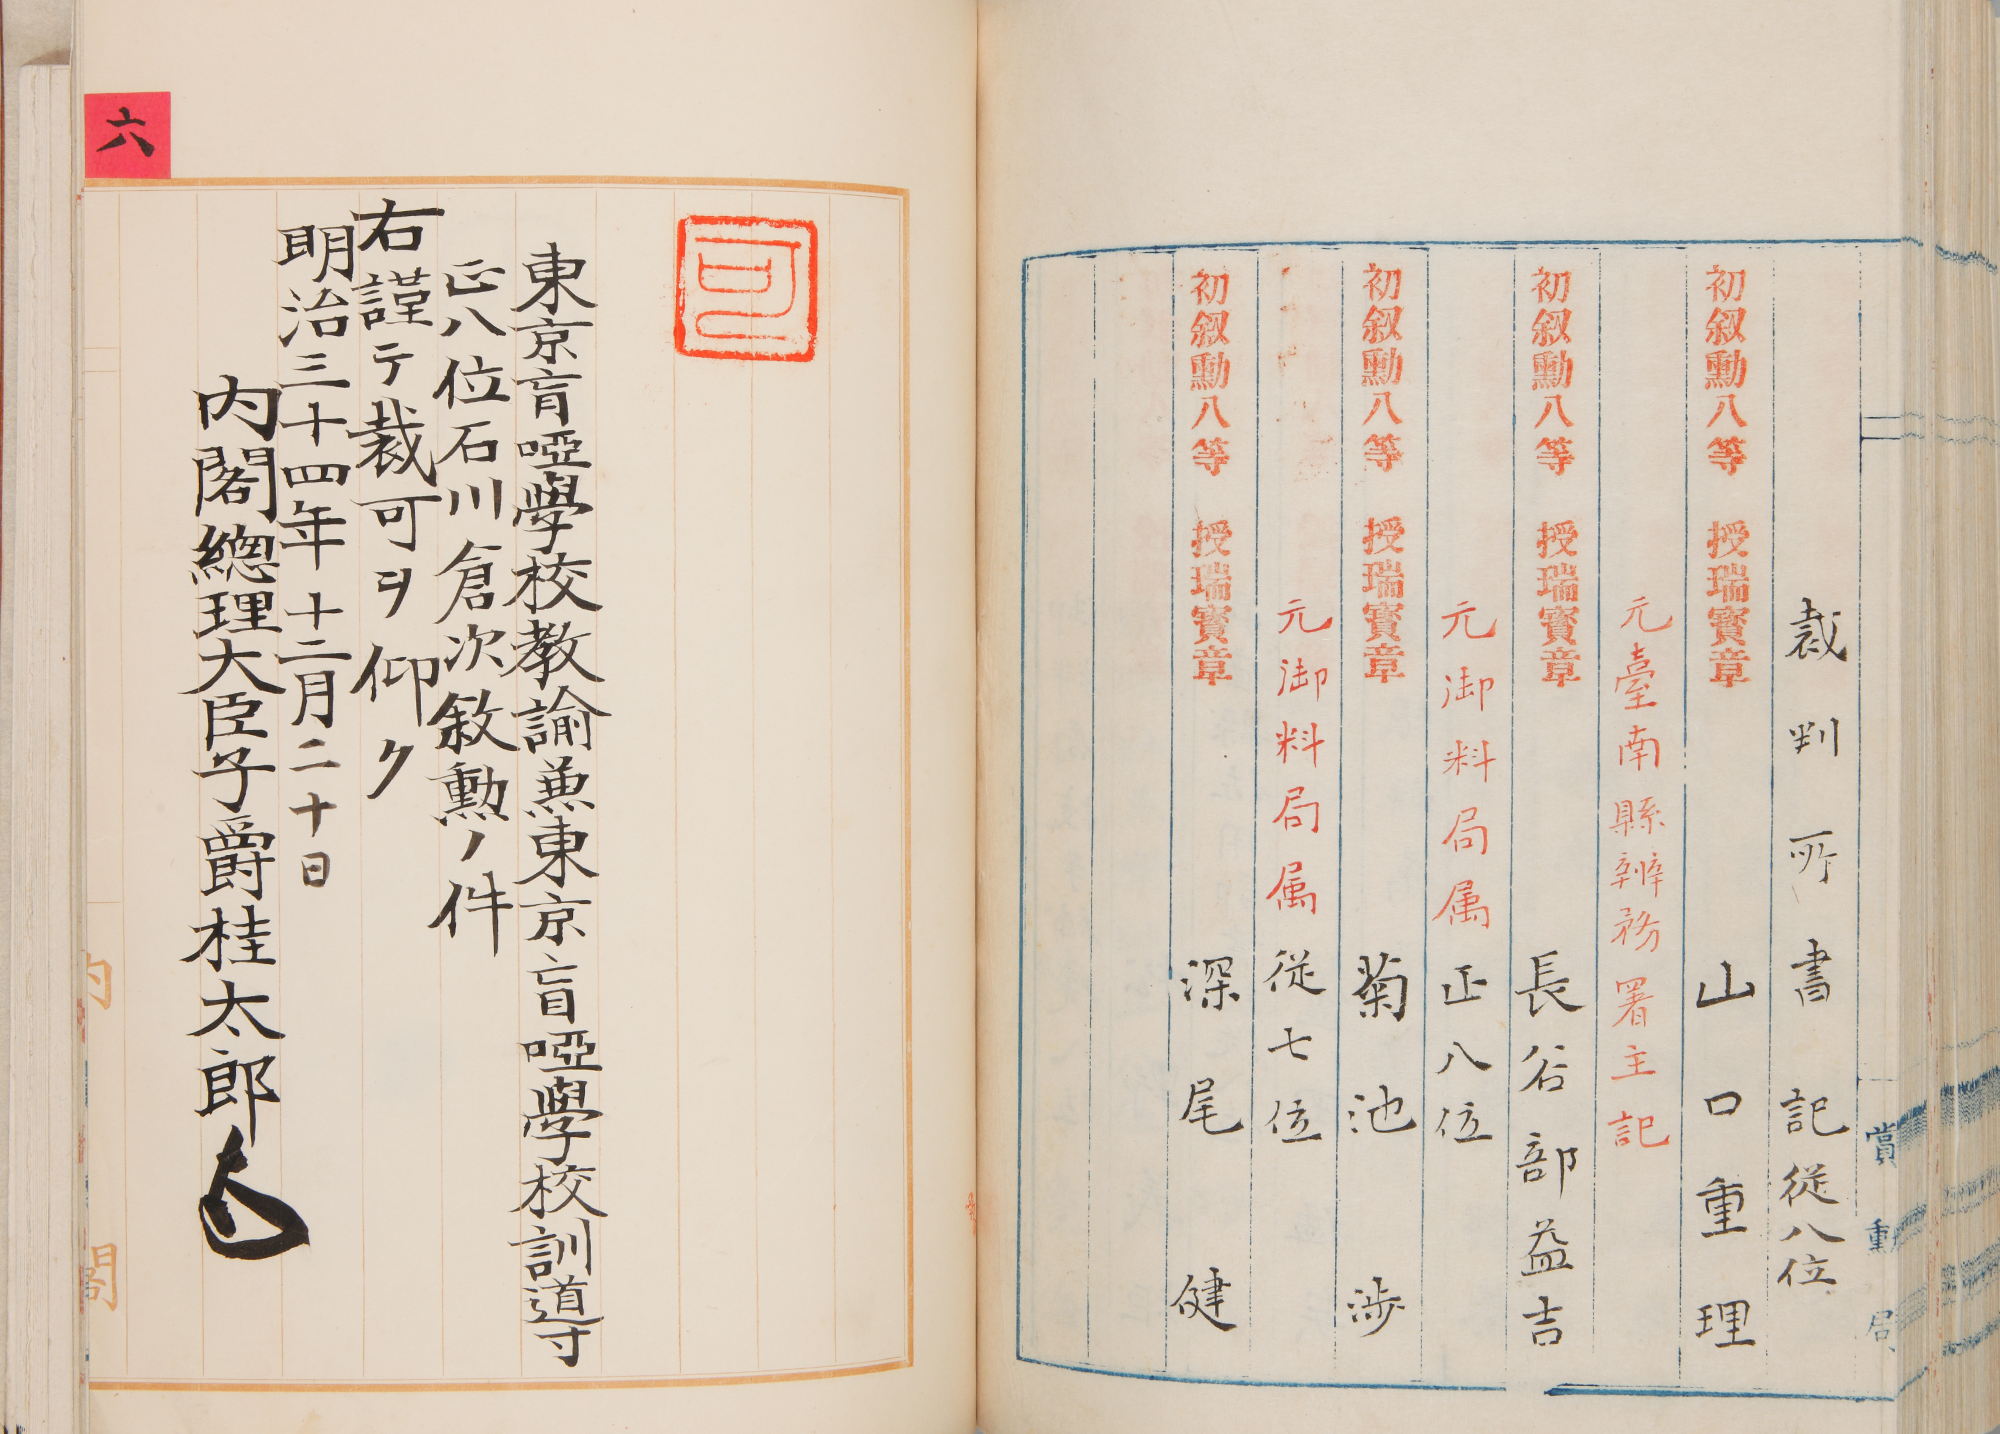 裁判所書記従八位
初叙勳八等　授瑞寳章　山口重理
元臺南縣辨務署主記
初叙勳八等　授瑞寳章　長谷部益吉
元御料局属正八位
初叙勳八等　授瑞寳章　菊池渉
元御料局属従七位
初叙勳八等　授瑞寳章　深尾健
賞勳局
六
可
東京盲啞學校教諭兼東京盲啞學校訓導
正八位石川倉次敘勳ノ件
右謹テ裁可ヲ仰ク
明治三十四年十二月二十日
内閣總理大臣子爵桂太郎
内閣